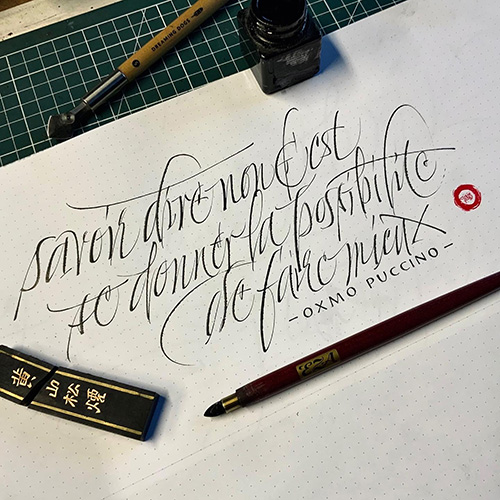 DREAMING DOGS
savoir dire non c'est
se donner la possibilité
de faire mieux
- OXMO PUCCINO -
黄山松煙